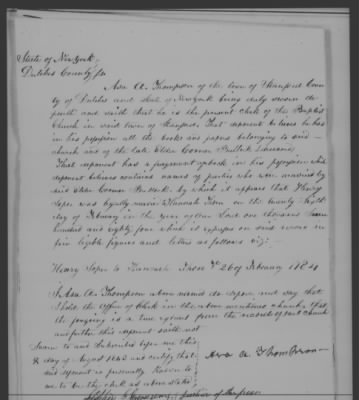 State of New York
Dutchess County ss
Asa A. Thompson of the town of Stanford Coun
ty of Dutches and State of New York being duly sworn de
poseth and saith that he is the present clerk of the Baptist
Church in said town of Stanford. That deponent believes he has
in his possession all the books and papers belonging to said
church and of the late Elder Comer Bullock deceased
That deponent has a paper book in his possession which
deponent believes contains names of parties who were married by
said Elder Comer Bullock by which it appears that Henry
Soper was legally married to Hannah on the twenty sixth
day of February in the year of our Lord one thousand seven
hundred and eighty four which is expressed on said record in
five legible figures and letters as follows viz:
Henry Soper to Hannah 26 of February
I, Asa A. Thompson above named do depose and say that
I hold the office of Clerk in the above mentioned church, that
the foregoing is a true extract from the records of said church
and further this deponent saith not
Sworn to and subscribed before me this
day of August and certify that
said deponent is personally known to
me to be the clerk as above stated
Asa A Thompson
Justice of the peace